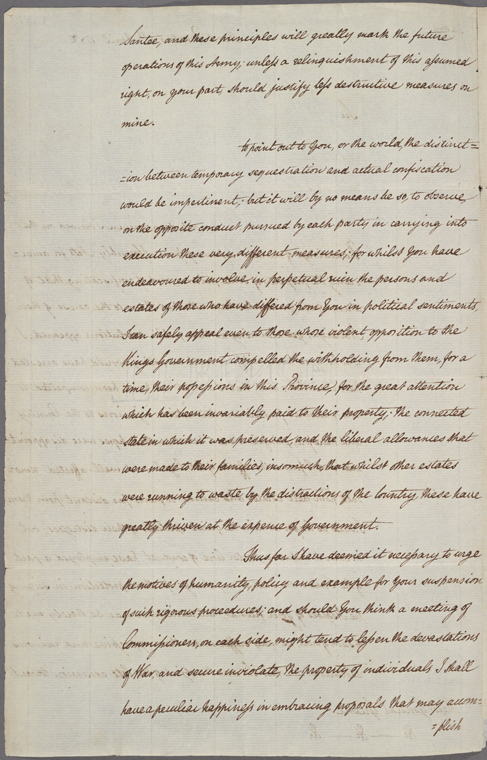 Santee, and these principles will greatly mark the future
operations of this Army, unless a relinquishment of this assumed
right, on your part should justify less destructive measures on
mine.
to point out to You, or the world, the distinct=
=ion between temporary sequestration and actual confiscation
would be impertinent, but it will by no means be so, to observe
on the opposite conduct pursued by each party in carrying into
execution these very different measures, for whilst You have
endeavoured to involve in perpetual ruin the persons and
estates of those who have differed from You in political sentiments,
I can safely appeal even to those whose violent opposition to the
Kings Government compelled the withholding from them, for a
time, their possessions in this Province, for the great attention
which has been invariably paid to their property; the connected
state in which it was preserved, and the liberal allowances that
were made to their families, insomuch, that whilst other estates
were running to waste by the distractions of the Country, these have
greatly thriven at the expence of Government.
Thus far I have deemed it necessary to urge
the motives of humanity, policy and example for Your suspension
of such rigorous procedures; and should You think a meeting of
Commissioners, on each side, might tend to lessen the devastations
of War, and secure inviolate, the property of individuals I shall
have a peculiar happiness in embracing proposals that may accom=
=plish